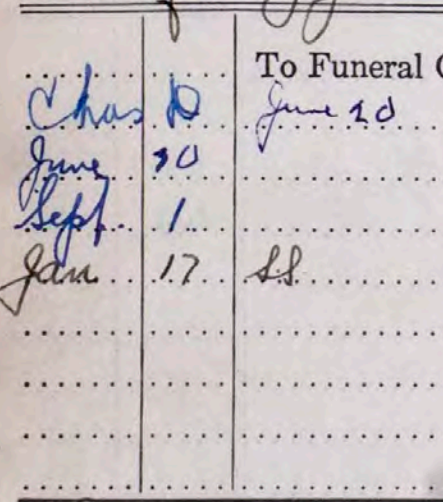 To Funeral C
Chas D June 20
June 30
Sept. 1
Jan 17 SS